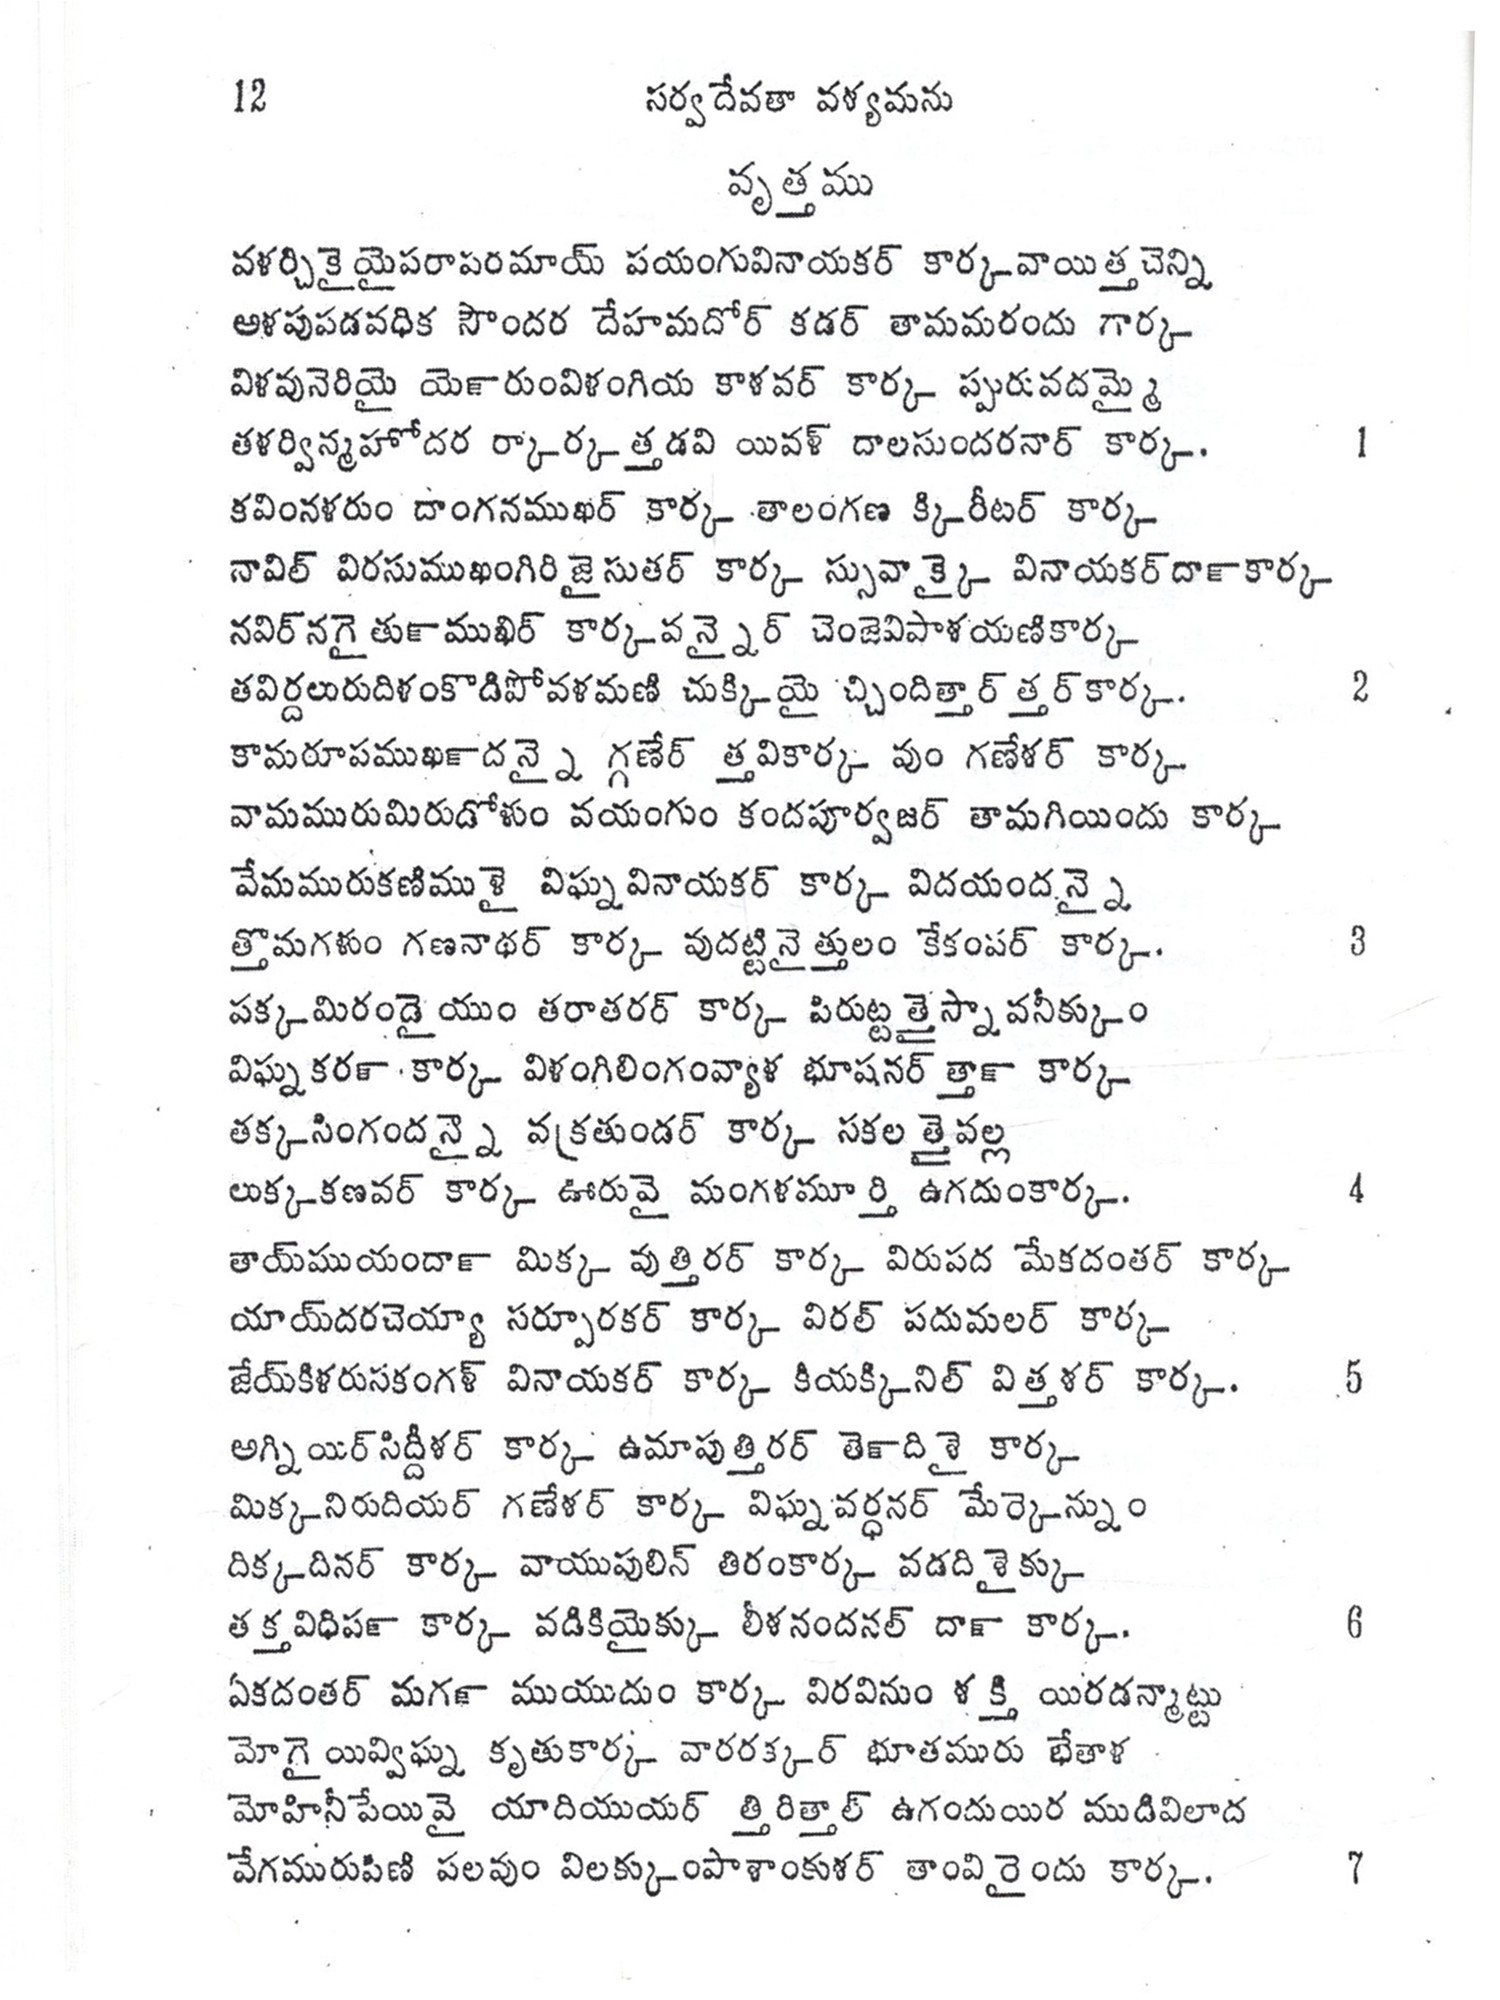 12 సర్వదేవతా వశ్యమను
వృత్తము
వళర్చికైయైపరాపరమాయ్ పయంగువినాయకర్ కార్కవాయిత్తచెన్ని
అళపుపడవధిక సౌందర దేహమదోర్ కడర్ తామమరందు గార్క
విళవునెరియై యెన్‌రుంవిళంగియ కాశవర్ కార్క ప్పురువదమ్మై
తళర్విన్మహోదర ర్కార్కత్తడవి యివళ్ దాలసుందరనార్ కార్క. 1
కవింనళరుం దాంగనముఖర్ కార్క తాలంగణ క్కిరీటర్ కార్క
నావిల్ విరసుముఖంగిరిజైసుతర్ కార్క స్సువాక్కై వినాయకర్‌దాన్‌కార్క
నవిర్‌నగైతున్‌ముఖిర్ కార్కవన్నైర్ చెంజెవిపాళయణికార్క
తవిర్దలురుదిళంకొడిపోవళమణి చుక్కియై చ్చిందిత్తార్ త్తర్‌కార్క. 2
కామరూపముఖన్‌దన్నై గ్గణేర్ త్తవికార్క వుం గణేశర్ కార్క
వామమురుమిరుడోళుం వయంగుం కందపూర్వజర్ తామగియిందు కార్క
వేమమురుకణిముళై విఘ్నవినాయకర్ కార్క విదయందన్నై
త్తొమగళుం గణనాథర్ కార్క వుదట్టినైత్తులం కేకంపర్ కార్క. 3
పక్కమిరండైయుం తరాతరర్ కార్క పిరుట్టత్తైస్నావనీక్కుం
విఘ్నకరన్ కార్క విళంగిలింగంవ్యాళ భూషనర్ త్తాన్ కార్క
తక్కసింగందన్నై వక్రతుండర్ కార్క సకలత్తైవల్ల
లుక్కకణవర్ కార్క ఊరువై మంగళమూర్తి ఉగదుంకార్క. 4
తాయ్‌ముయందాన్ మిక్క వుత్తిరర్ కార్క విరుపద మేకదంతర్ కార్క
యాయ్‌దరచెయ్యా సర్పూరకర్ కార్క విరల్ పదుమలర్ కార్క
జేయ్‌కిళరుసకంగళ్ వినాయకర్ కార్క కియక్కినిల్ విత్తళర్ కార్క. 5
అగ్నియిర్‌సిద్దీళర్ కార్క ఉమాపుత్తిరర్ తెన్‌దిశై కార్క
మిక్కనిరుదియర్ గణేశర్ కార్క విఘ్నవర్ధనర్ మేర్కెన్నుం
దిక్కదినర్ కార్క వాయుపులిన్ తిరంకార్క వడదిశైక్కు
తక్తవిధిపన్ కార్క వడికియైక్కు లీళనందనల్ దాన్ కార్క. 6
ఏకదంతర్ మగన్ ముయుదుం కార్క విరవినుం శక్తి యిరడన్మాట్టు
మోగైయివ్విఘ్న కృతుకార్క వారరక్కర్ భూతమురు భేతాళ
మోహినీపేయివై యాదియుయర్ త్తిరిత్తాల్ ఉగందుయిర ముడివిలాద
వేగమురుపిణి పలవుం విలక్కుంపాశాంకుళర్ తాంవిరైందు కార్క. 7